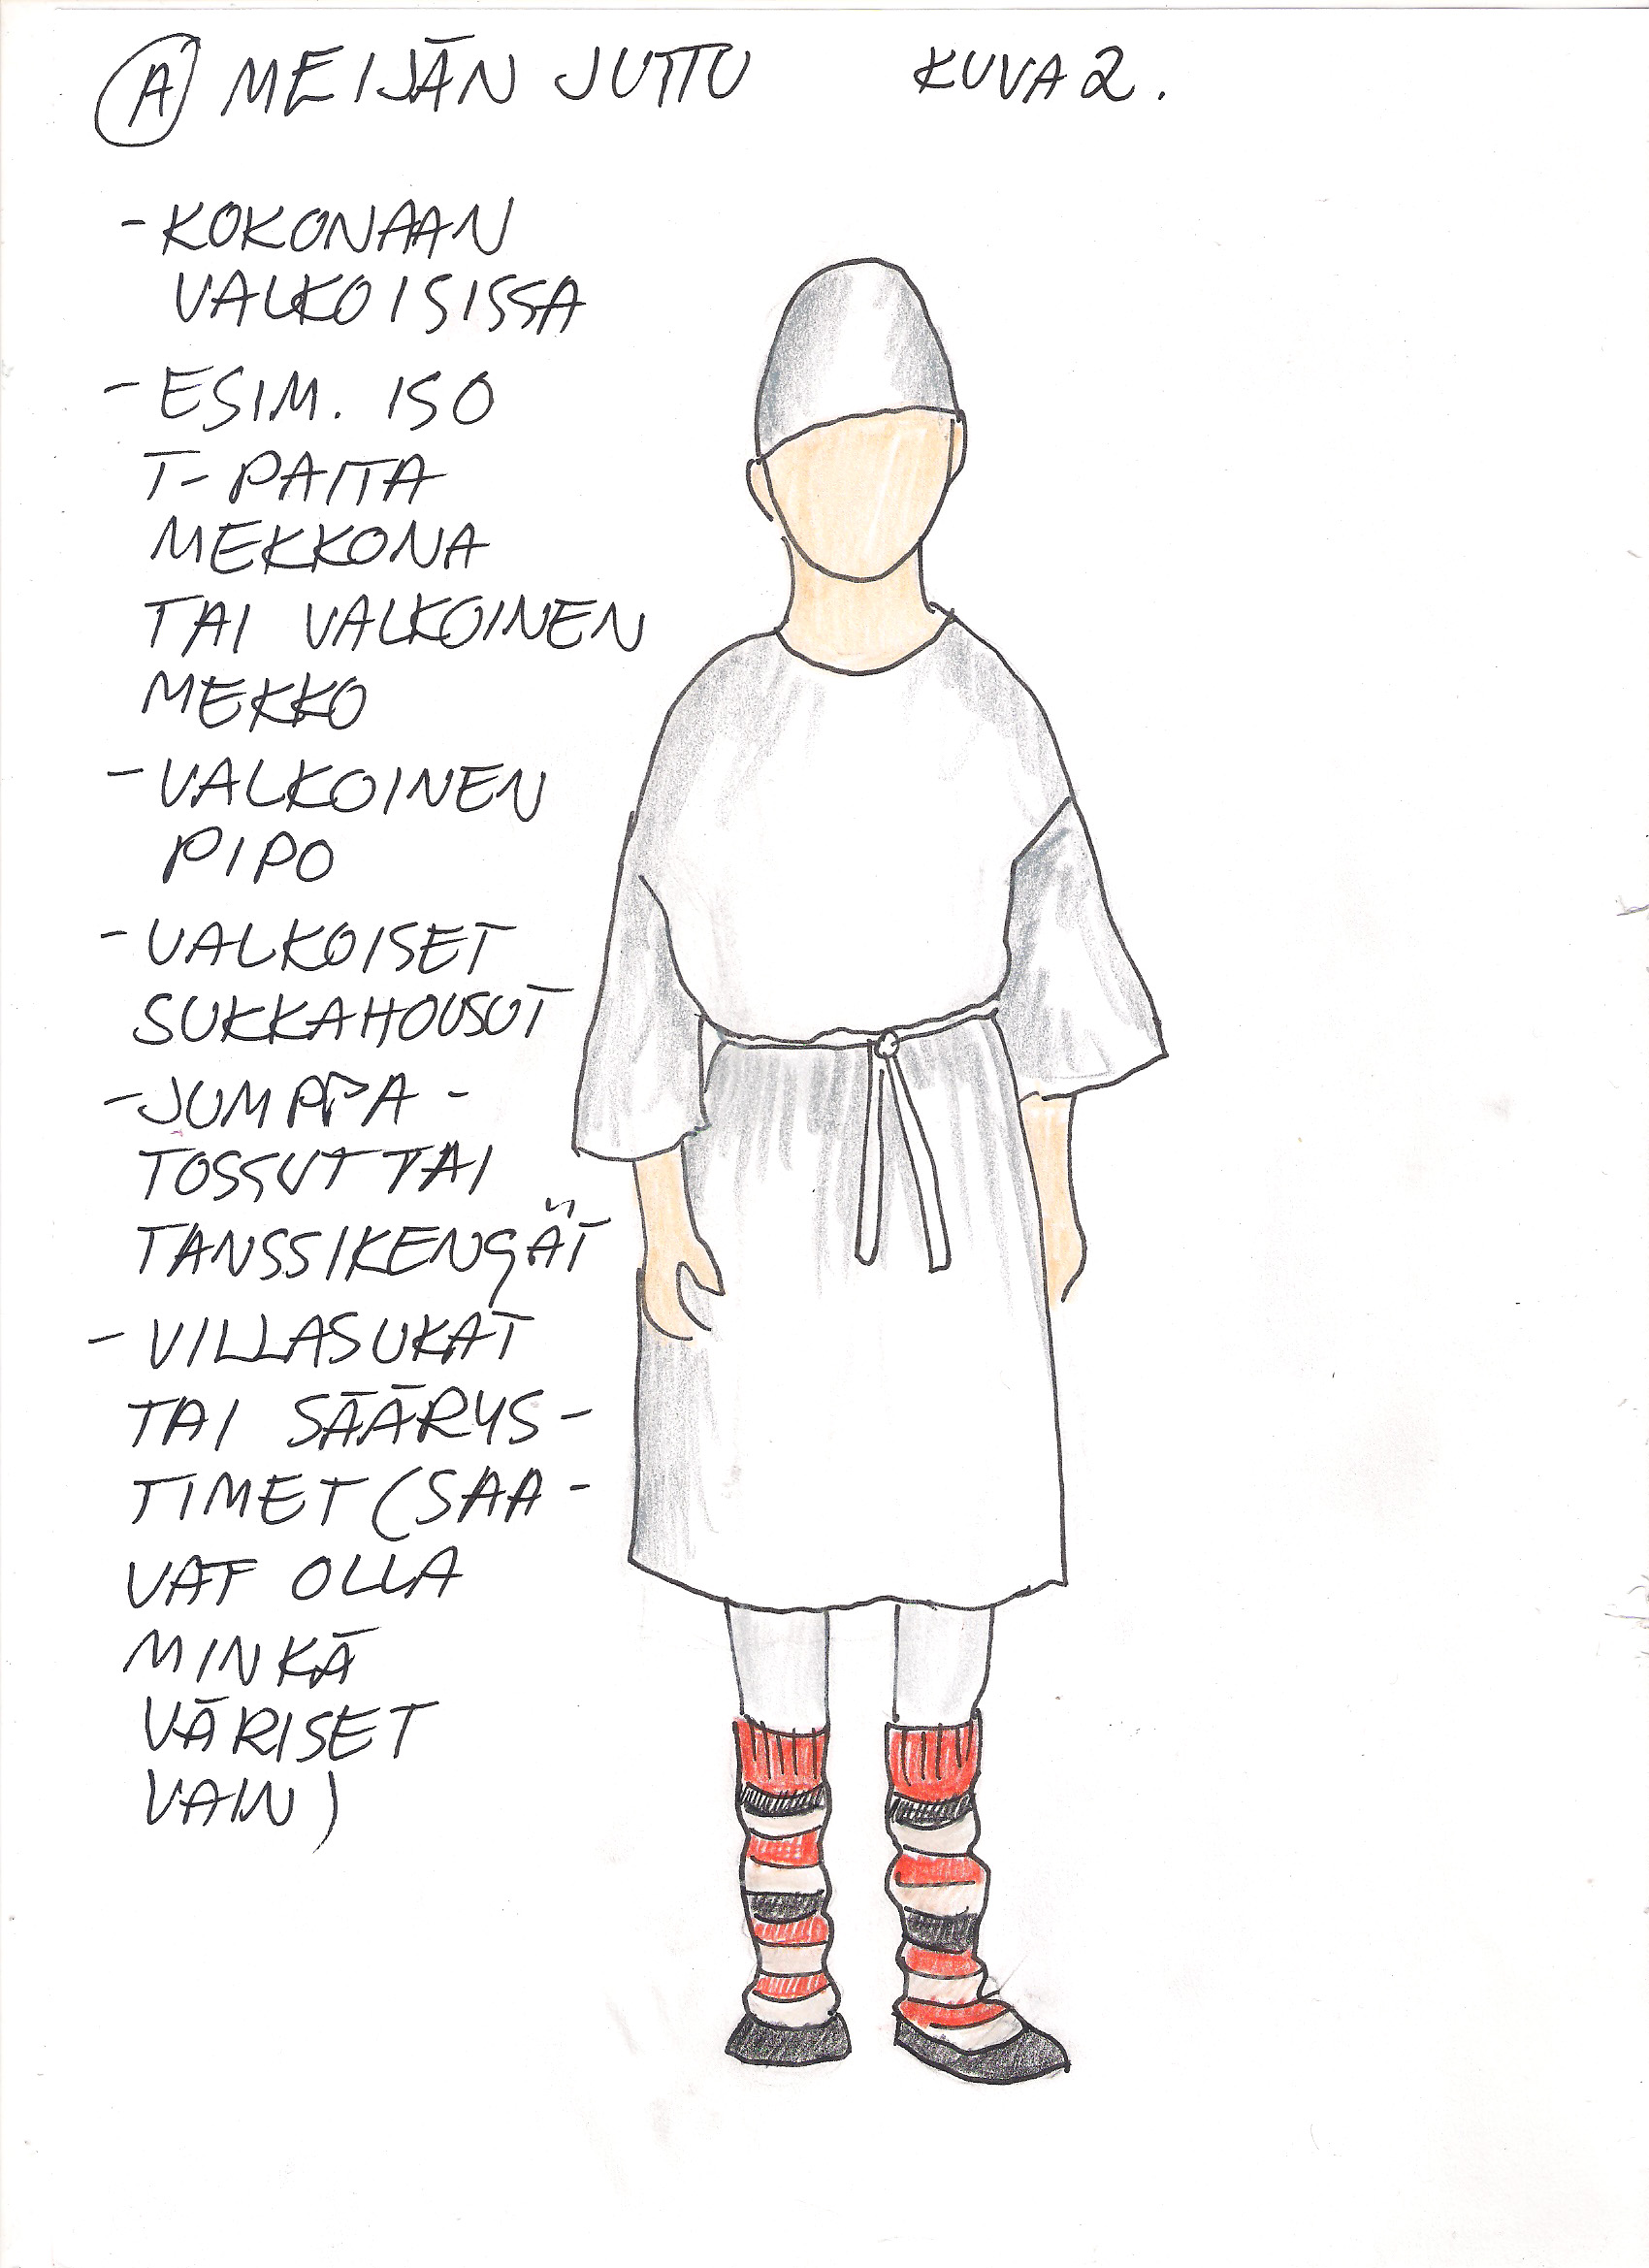 A MEIJÄN JUTTU KUVA 2.
- KOKONAAN
VALKOISISSA
- ESIM. ISO
T-PAITA
MEKKONA
TAI VALKOINEN
MEKKO
- VALKOINEN
PIPO
- VALKOISET
SUKKAHOUSUT
- JUMPPA-
TOSSUT TAI
TANSSIKENGÄT
- VILLASUKAT
TAI SÄÄRYS-
TIMET (SAA-
VAT OLLA
MINKÄ
VÄRISET
VAIN)